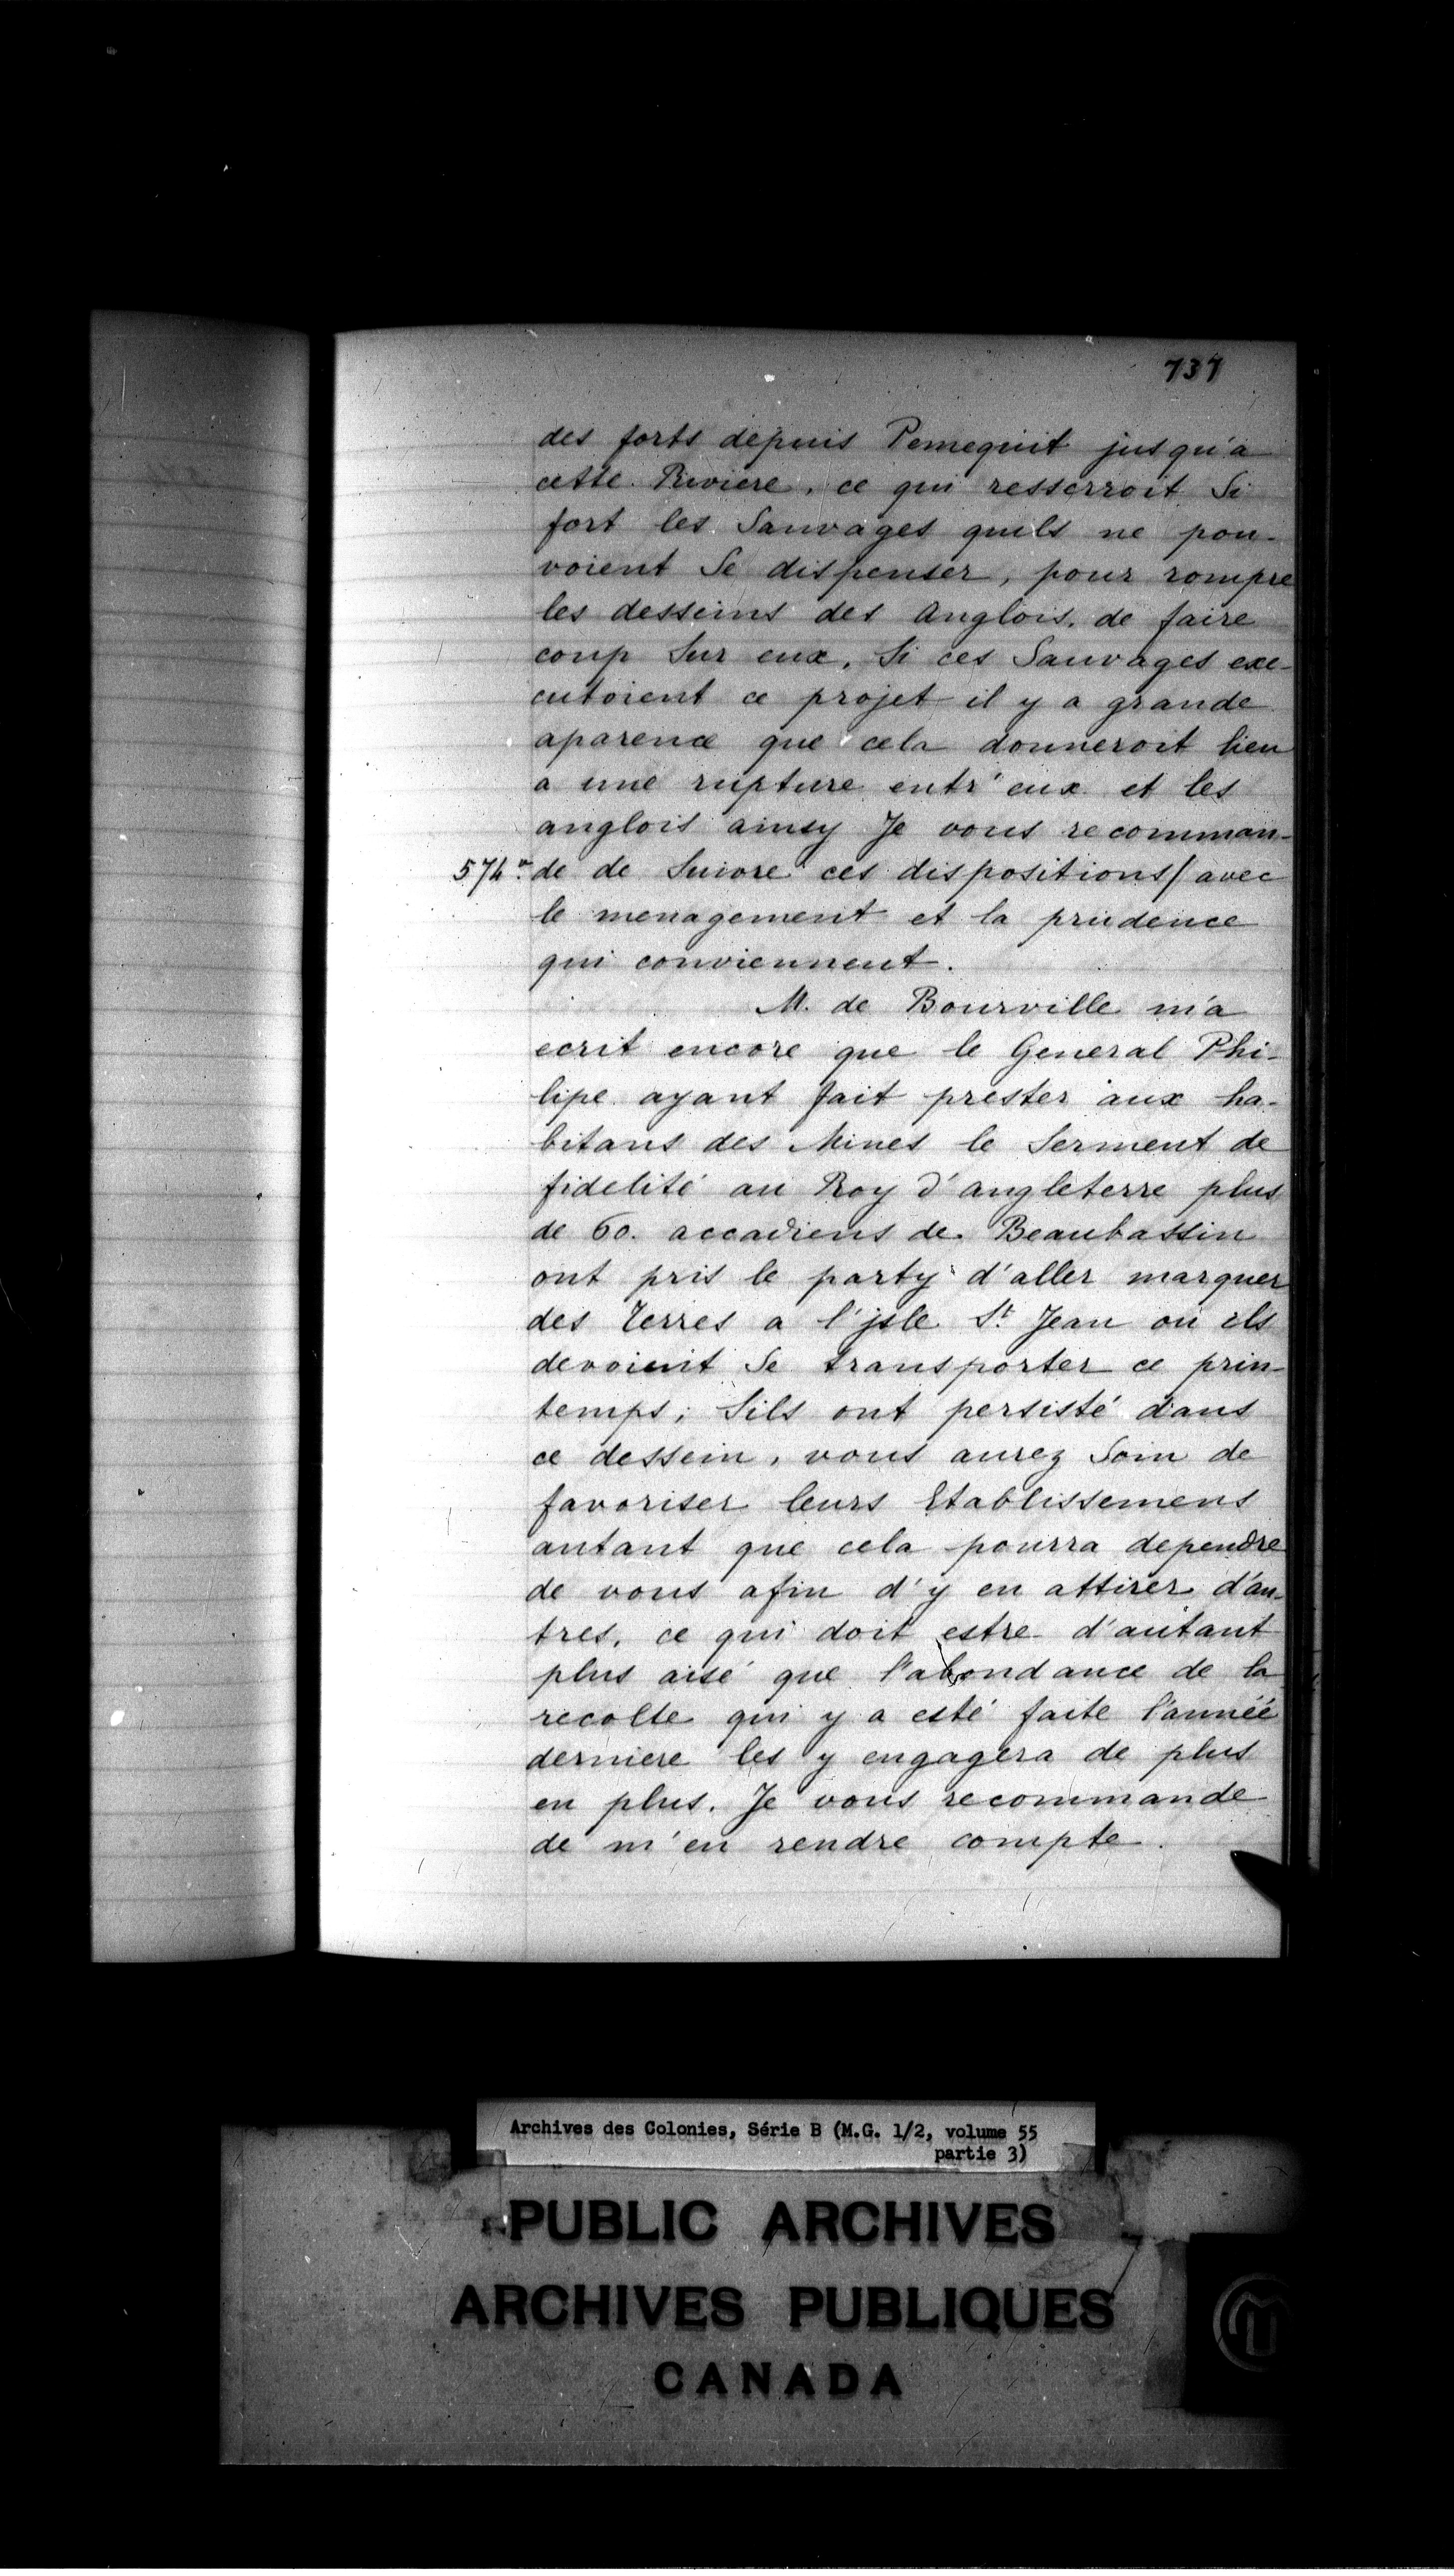 737
des forts depuis Pemequit jusqu'à
cette Riviere, ce qui resserroit Si
fort les Sauvages quils ne pou-
voient Se dispenser, pour rompre
les desseins des Anglois, de faire
coup Sur eux, Si ces Sauvages exe-
cutoient ce projet il y a grande
aparence que cela donneroit lieu
a une rupture entr'eux et les
anglois ainsy Je vous recomman-
574vo. de de Suivre ces dispositions/avec
le menagement et la prudence
qui conviennent.
M. de Bourville m'a
ecrit encore que le General Phi-
lipe ayant fait prester aux ha-
bitans des Mines le Serment de
fidelité au Roy d'angleterre plus
de 60. accadiens de Beaubassin
ont pris le party d'aller marquer
des Terres a l'jsle St. Jean où ils
devoient Se transporter ce prin-
temps; Sils ont persisté dans
ce dessein, vous aurez Soin de
favoriser leurs Etablissemens
autant que cela pourra dependre
de vous afin d'y en attirer d'au-
tres, ce qui doit estre d'autant
plus aisé que l'abondance de la
recolte qui y a esté faite l'année
derniere les y engagera de plus
en plus. Je vous recommande
de m'en rendre compte.
Archives des Colonies, Série B (M.G. 1/2, volume 55
partie 3)
PUBLIC ARCHIVES
ARCHIVES PUBLIQUES
CANADA